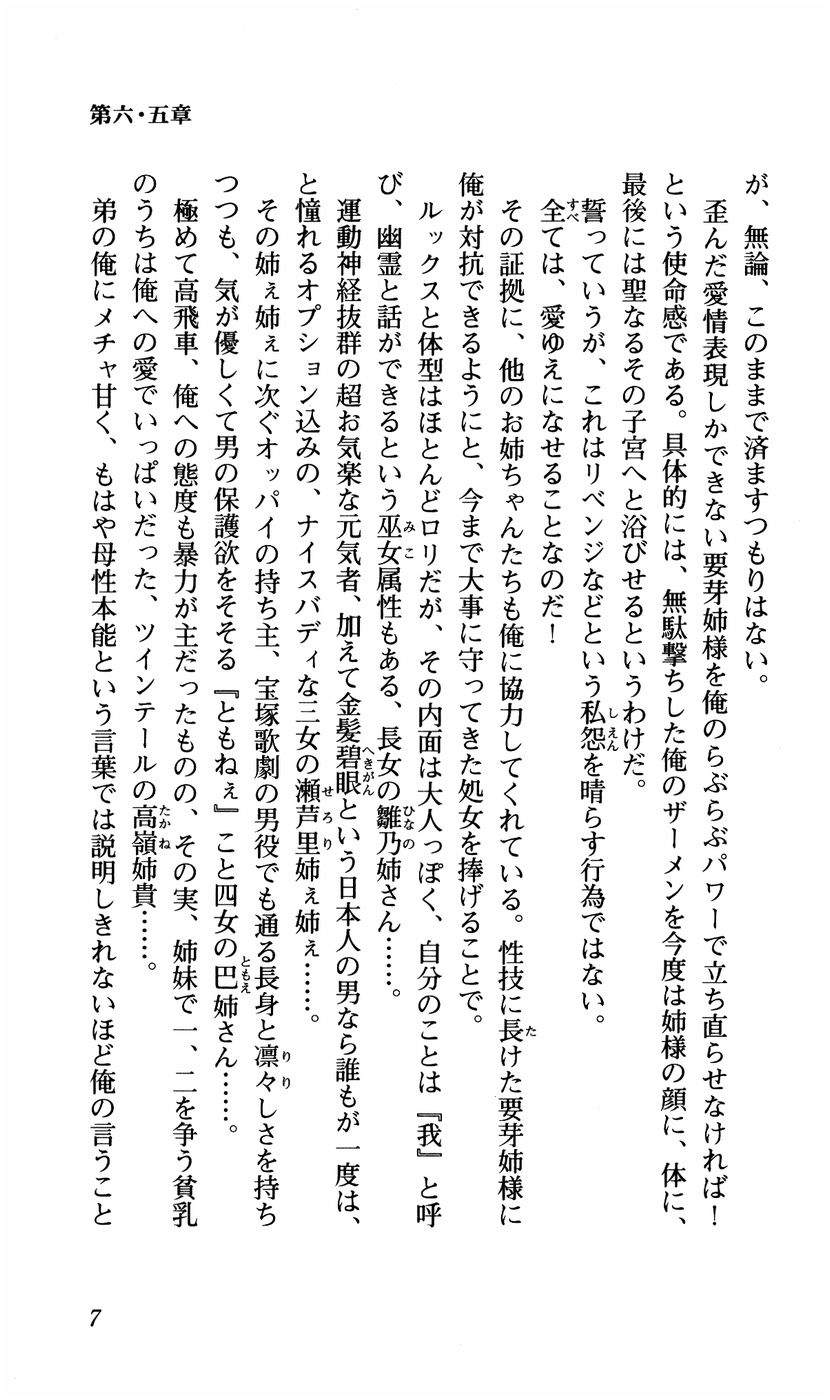 第六・五章
が、無論、このままで済ますつもりはない。
歪んだ愛情表現しかできない要芽姉様を俺のらぶらぶパワーで立ち直らせなければ！
という使命感である。具体的には、無駄撃ちした俺のザーメンを今度は姉様の顔に、体に、
最後には聖なるその子宮へと浴びせるというわけだ。
誓っていうが、これはリベンジなどという私怨を晴らす行為ではない。
全ては、愛ゆえになせることなのだ！
その証拠に、他のお姉ちゃんたちも俺に協力してくれている。性技に長けた要芽姉様に
俺が対抗できるようにと、今まで大事に守ってきた処女を捧げることで。
ルックスと体型はほとんどロリだが、その内面は大人っぽく、自分のことは『我』と呼
び、幽霊と話ができるという巫女属性もある、長女の雛乃姉さん……。
運動神経抜群の超お気楽な元気者、加えて金髪碧眼という日本人の男なら誰もが一度は、
と憧れるオプション込みの、ナイスバディな三女の瀬芦里姉ぇ姉ぇ……。
その姉ぇ姉ぇに次ぐオッパイの持ち主、宝塚歌劇の男役でも通る長身と凛々しさを持ち
つつも、気が優しくて男の保護欲をそそる『ともねぇ』こと四女の巴姉さん……。
極めて高飛車、俺への態度も暴力が主だったものの、その実、姉妹で一、二を争う貧乳
のうちは俺への愛でいっぱいだった、ツインテールの高嶺姉貴……。
弟の俺にメチャ甘く、もはや母性本能という言葉では説明しきれないほど俺の言うこと
7